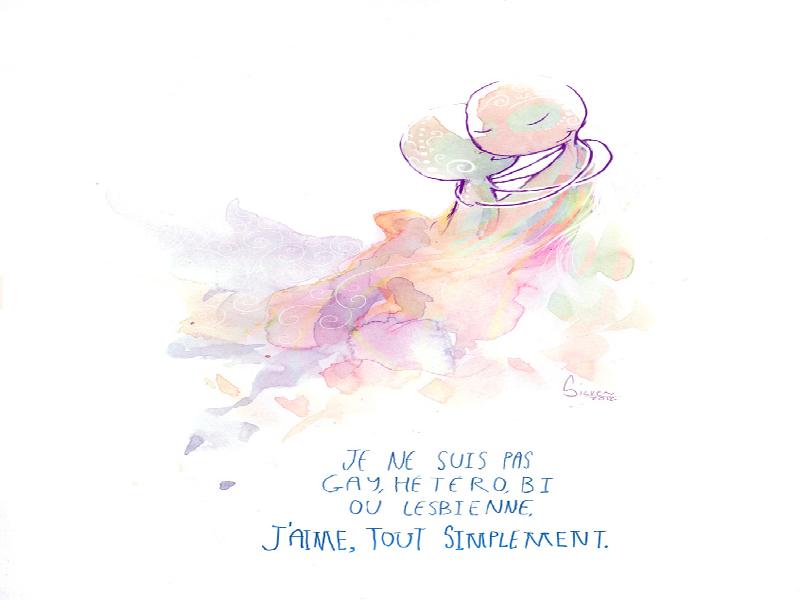 Silver
2012
JE NE SUIS PAS
GAY, HETERO, BI
OU LESBIENNE.
J'AIME, TOUT SIMPLEMENT.